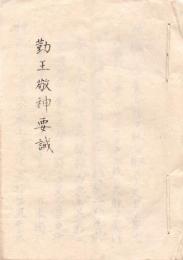 勤王敬神要誡